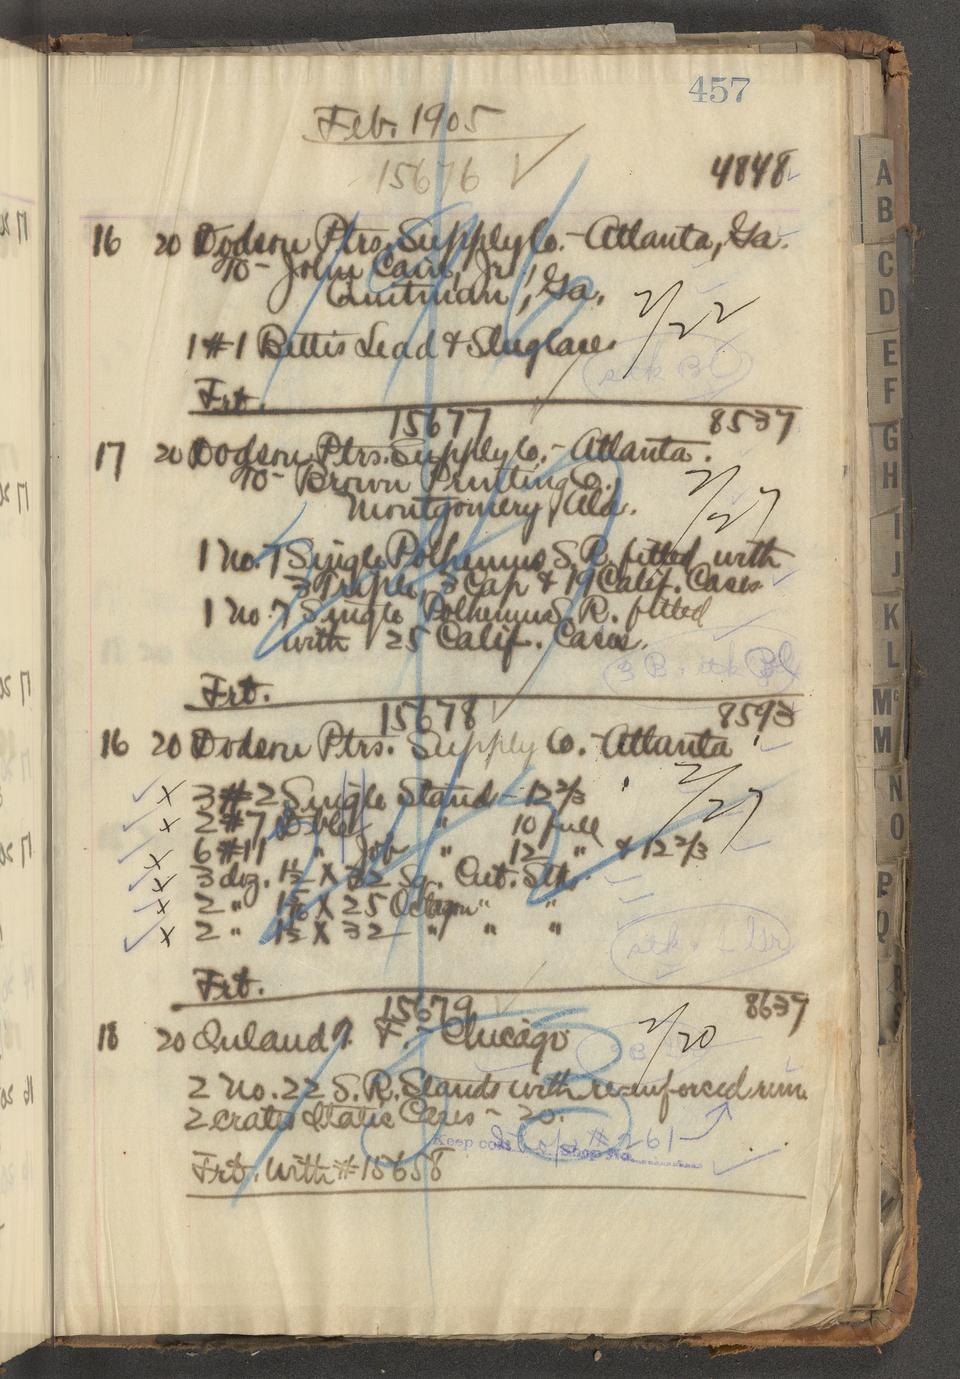 457
Feb. 1905
15676 4848
16 20 Dodson Ptrs. Supply Co. - Atlanta, Ga.
To - John Cain, Jr.,
Quitman, Ga.
2/22
1 #1 Bettis Lead & Slug Case
stk Bl
Frt.
15677 8537
17 20 Dodson Ptrs. Supply Co. - Atlanta.
To - Brown Printing Co.,
Montgomery, Ala.
2/27
1 No. 7 Single Polhemus S. R. fitted with
3 Triple, 3 Cap & 19 Calif. Cases
1 No. 7 Single Polhemus S. R. fitted
with 25 Calif. Cases.
3 B. stk Bl
Frt.
15678 8593
16 20 Dodson Ptrs. Supply Co. - Atlanta
2/27
x 3 #2 Single Stand - 12 2/3
x 2 #7 Dble " 10 full
x 6 #11 " Job " 12 " & 12 2/3
x 3 doz. 1 1/2 X 32 Sq. Cut. Stks.
x 2 " X 25 Octagon " "
x 2 " 1 1/2 X 32 " " "
stk.
Frt.
15679 8637
18 20 Inland T. F. - Chicago
2/20
2 No. 22 S. R. Stands with re-inforced runs
2 crates Static Cases - 20.
Keep cost Shop No. #261
Frt. with #15658
A
B
C
D
E
F
G
H
I
J
K
L
Mc
M
N
O
P
Q
R
S